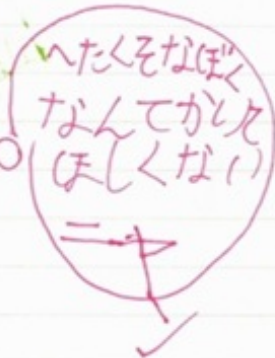 へたくそなぼく
なんてかいて
ほしくない
ニャ